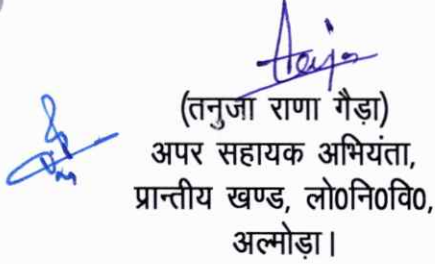 (तनुजा राणा गैड़ा)
अपर सहायक अभियंता,
प्रान्तीय खण्ड, लो०नि०वि०,
अल्मोड़ा।